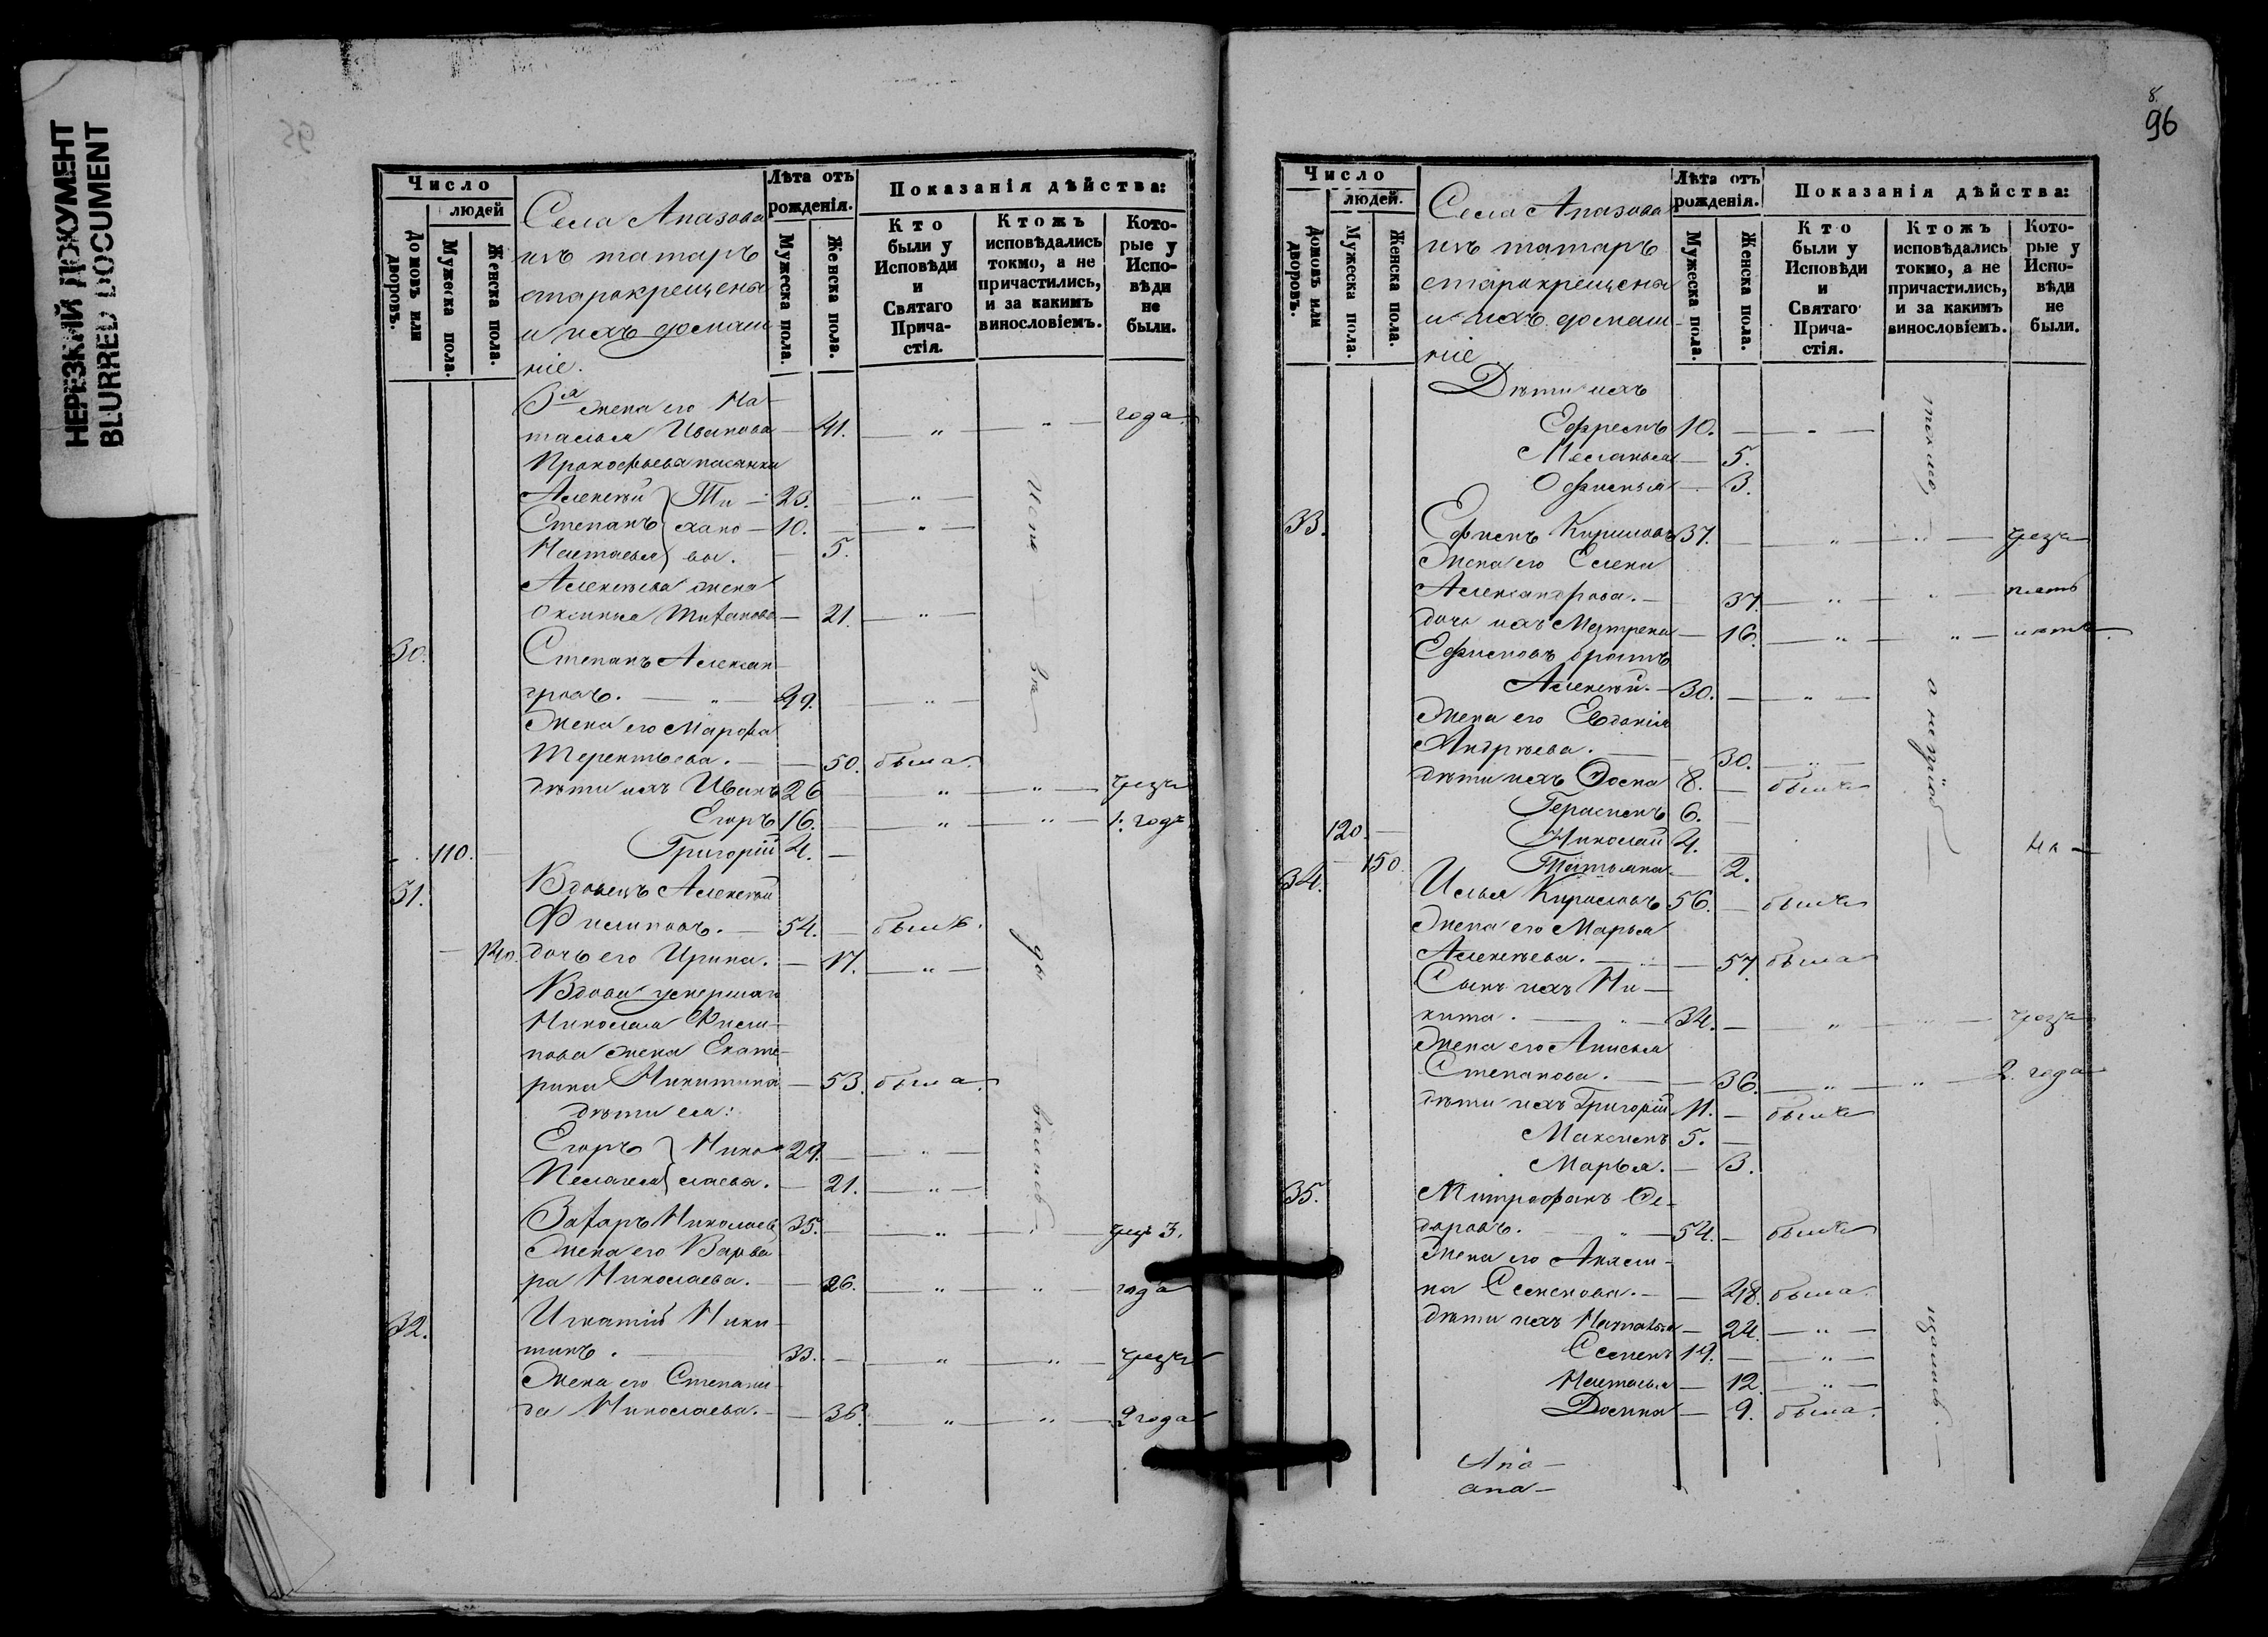 НЕРЕЗКИЙ ДОКУМЕНТ
BLURRED DOCUMENT
95
Число
людей
Домовъ или дворовъ.
Мужеска пола.
Женска пола.
Села Апазова
изъ татаръ
старокрещены
и ихъ домаш
ніе.
Лѣта отъ рожденія.
Мужеска пола.
Женска пола.
Показанія дѣйства:
Кто были у Исповѣди и Святаго Причастія.
Ктожъ исповѣдались токмо, а не причастились, и за какимъ винословіемъ.
Которые у Исповѣди не были.
3я жена его На-
талья Иванова — 41. — „ — „ — года.
Прокофьева пасынки
Алексѣй Ти - 23. — „ —
Степанъ хано - 10. — „ —
Настасья вы. — 5.
Алексѣева жена
Оксинья Тиханова — 21. — „ —
30. Степанъ Алексан-
дровъ. — „ — 49. — „ —
Жена его Марфа
Терентьева. — 50. была.
дѣти ихъ Иванъ 26 — „ — „ — чрезъ
Егоръ 16. — „ — „ — 1. годъ
110. Григорій 4. —
31. Вдовецъ Алексѣй
Филиповъ. — 54. — былъ.
140. дочь его Ирина. — 17. — „ —
Вдова умершаго
Николая Фили-
пова жена Екате-
рина Никитина — 53. была.
дѣти ея:
Егоръ Нико 29. — „ —
Пелагея лаевы. — 21. — „ —
Захаръ Николаевъ 35. — „ — чрезъ 3.
Жена его Варва
ра Николаева. — 26. „ — „ — года
32. Игнатій Ники-
тинъ. — 33. — „ — „ — чрезъ
Жена его Степани-
да Николаева. — 36. „ — „ — 2 года
8.
96
Число
людей.
Домовъ или дворовъ.
Мужеска пола.
Женска пола.
Села Апазова
изъ татаръ
старокрещены
и ихъ домаш-
ніе
Лѣта отъ рожденія.
Мужеска пола.
Женска пола.
Показанія дѣйства:
Кто были у Исповѣди и Святаго Причастія.
Ктожъ исповѣдались токмо, а не причастились, и за какимъ винословіемъ.
Которые у Исповѣди не были.
Дѣти ихъ
Ефремъ 10. — „ —
Меланья — 5.
Офимья — 3.
33. Ефимъ Кириловъ 37. — „ — „ — чрезъ
Жена его Елена
Александрова. — 37. — „ — „ — пять
дочь ихъ Матрена — 16. — „ — „ — лѣтъ.
Ефимовъ братъ
Алексѣй. — 30. — „ —
Жена его Евдокія
Андрѣева. — 30. — „ —
дѣти ихъ Фома 8. — былъ
Герасимъ 6. —
120. — Николай 4. —
150 Татьяна — 2.
34. Илья Кириловъ 56. — былъ
Жена его Марья
Алексѣева. — 57 была
Сынъ ихъ Ни-
кита. — „ — 34. — „ — чрезъ
Жена его Анисья
Степанова. — 36. — „ — „ — 2. года
дѣти ихъ Григорій 11. — былъ
Максимъ 5. —
Марья. — 3.
35. Митрофанъ Ѳе-
доровъ. — „ — 54. — былъ
Жена его Акили-
на Семенова. — 48. была.
дѣти ихъ Наталья — 24. — „ —
Семенъ 19. — „ —
Настасья — 12. — „ —
Домна — 9. была.